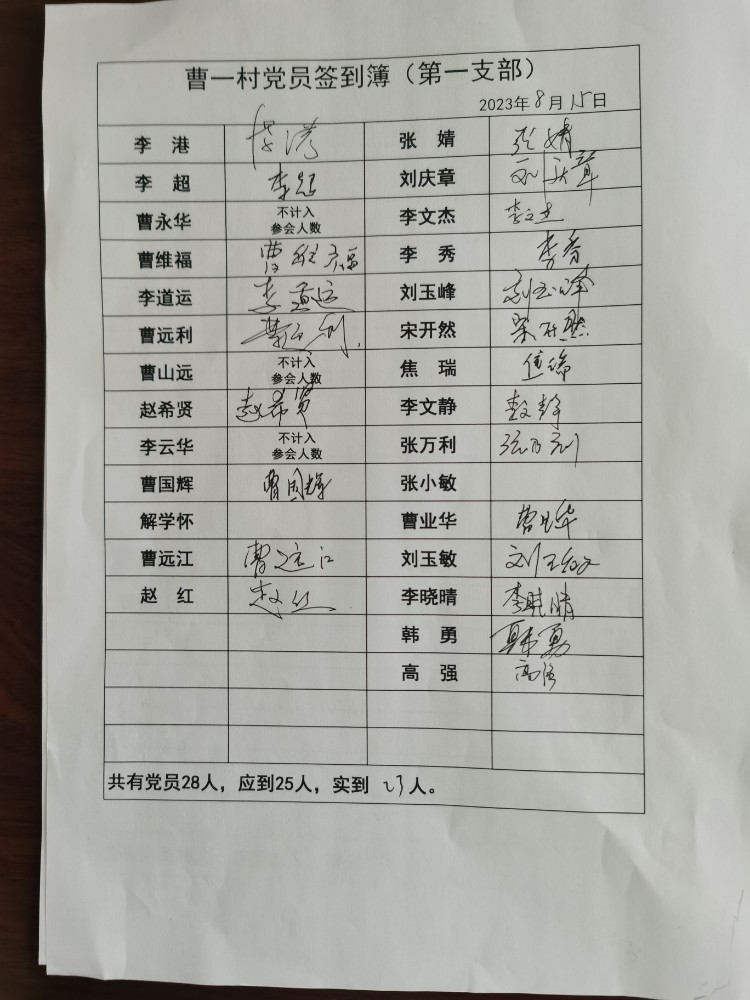 曹一村党员签到簿（第一支部）
2023年8月15日
李 港 李港 张 婧 张婧
李 超 李超 刘庆章 刘庆章
曹永华 不计入参会人数 李文杰 李文杰
曹维福 曹维福 李 秀 李秀
李道运 李道运 刘玉峰 刘玉峰
曹远利 曹远利 宋开然 宋开然
曹山远 不计入参会人数 焦 瑞 焦瑞
赵希贤 赵希贤 李文静 李文静
李云华 不计入参会人数 张万利 张万利
曹国辉 曹国辉 张小敏
解学怀 曹业华 曹业华
曹远江 曹远江 刘玉敏 刘玉敏
赵 红 赵红 李晓晴 李晓晴
韩 勇 韩勇
高 强 高强
共有党员28人，应到25人，实到 23人。